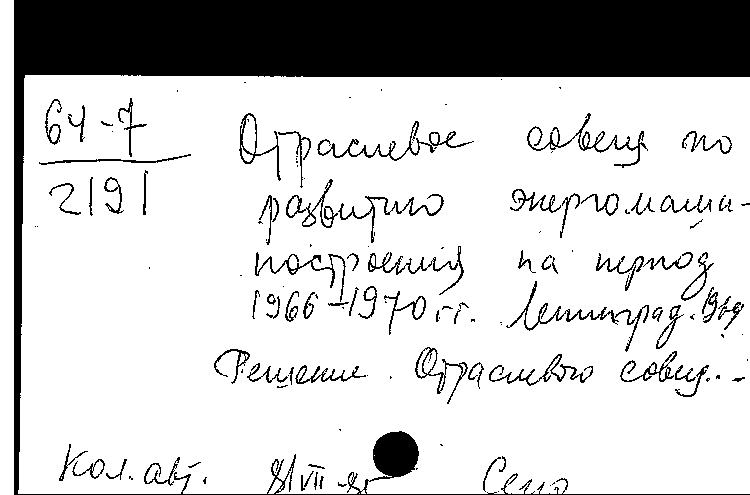 64-7 Отраслевое совещ по
2191 развитию энергомаши-
ностроения на период
1966-1970 гг. Ленинград.
Решение Отраслевого совещ...
Кол. авт.